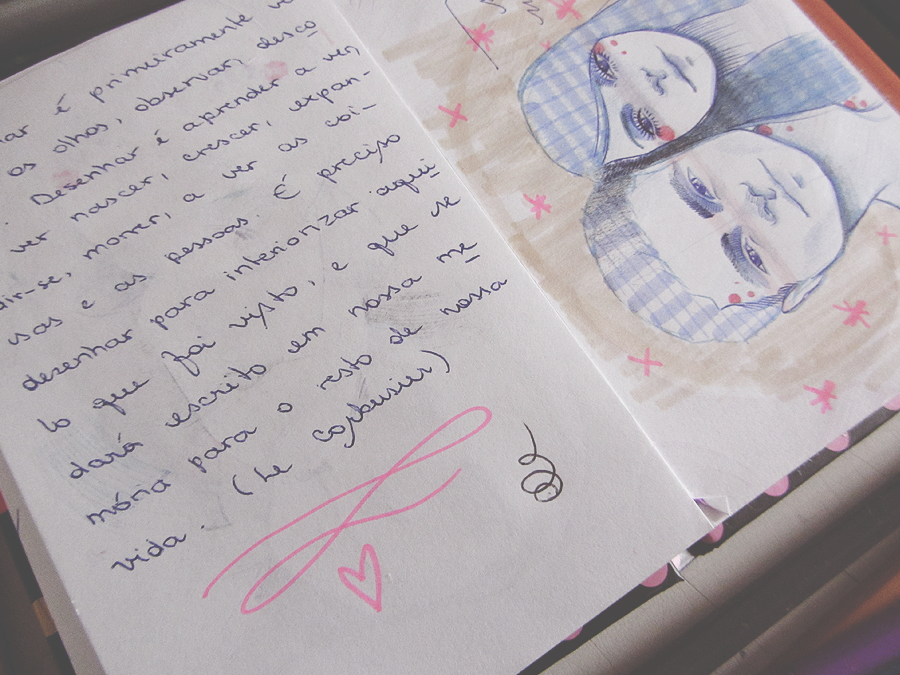 ar é primeiramente
os olhos, observar, desco
. Desenhar é aprender a ver
ver nascer, crescer, expan-
dir-se, morrer, a ver as coi-
sas e as pessoas. É preciso
desenhar para interiorizar aqui
lo que foi visto, e que se
dará escrito em nossa me
mória para o resto de nossa
vida. (Le Corbusier)